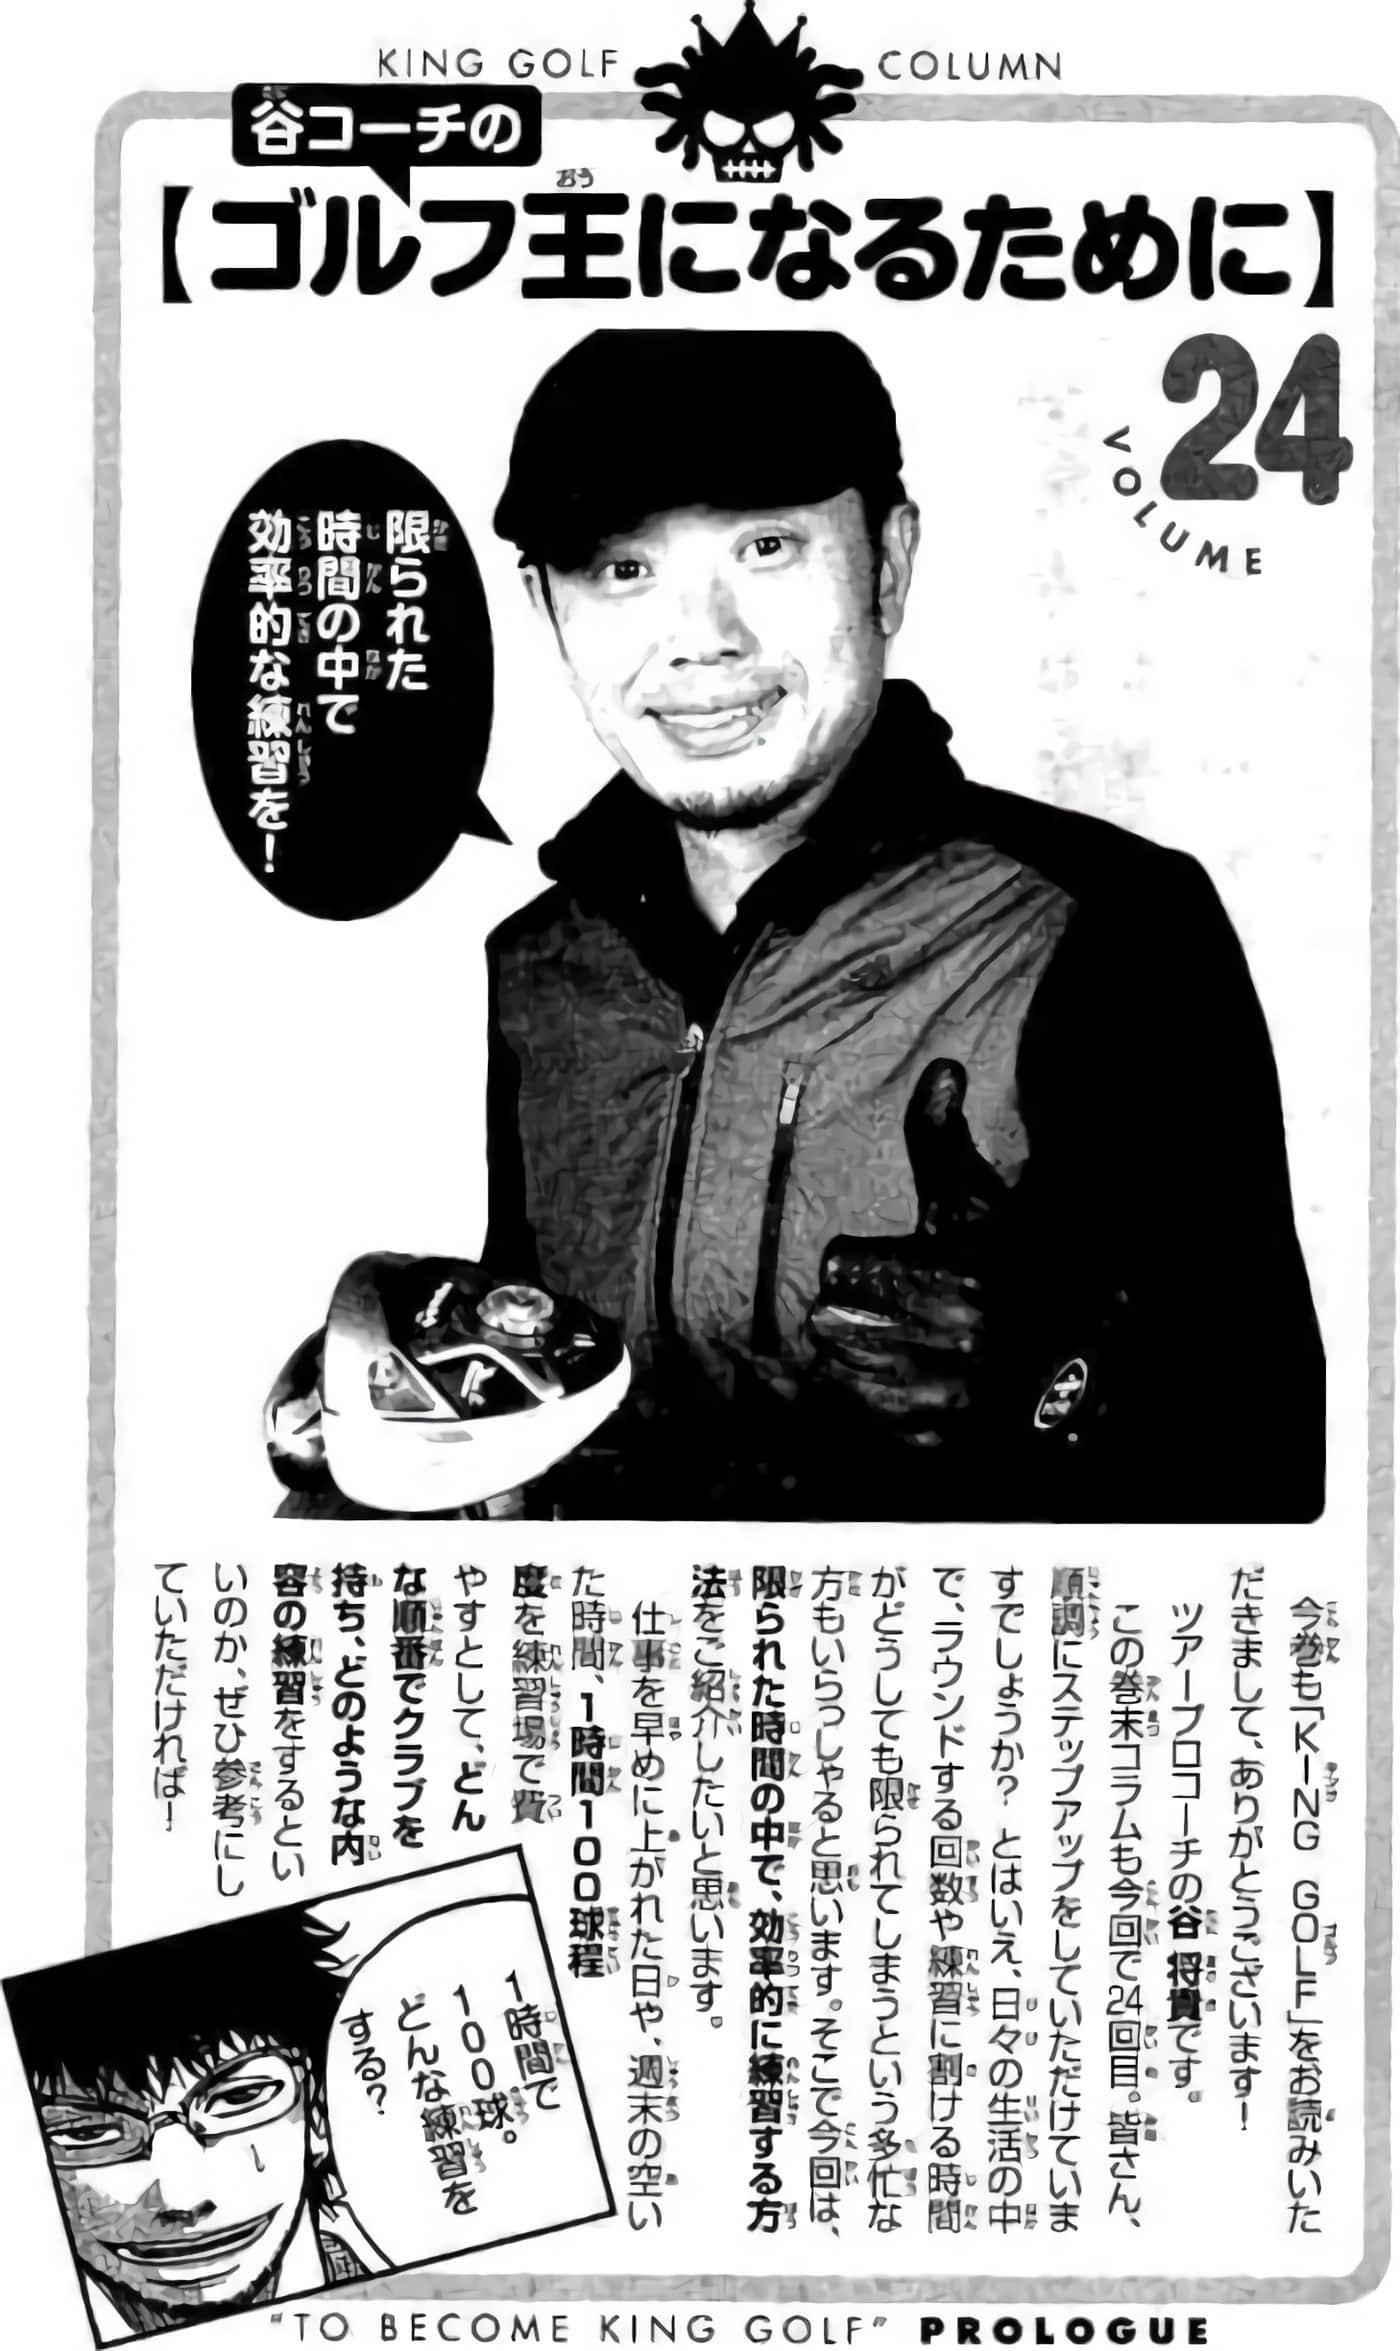 KING GOLF COLUMN
谷コーチの
【ゴルフ王になるために】
24
VOLUME
限られた
時間の中で
効率的な練習を!
今巻も「KING GOLF」をお読みいた
だきまして、ありがとうございます!
ツアープロコーチの谷 将貴です。
この巻末コラムも今回で24回目。皆さん、
順調にステップアップをしていただけていま
すでしょうか? とはいえ、日々の生活の中
で、ラウンドする回数や練習に割ける時間
がどうしても限られてしまうという多忙な
方もいらっしゃると思います。そこで今回は、
限られた時間の中で、効率的に練習する方
法をご紹介したいと思います。
仕事を早めに上がれた日や、週末の空い
た時間、1時間100球程
度を練習場で費
やすとして、どん
な順番でクラブを
持ち、どのような内
容の練習をするとい
いのか、ぜひ参考にし
ていただければ!
1時間で
100球。
どんな練習を
する?
"TO BECOME KING GOLF" PROLOGUE